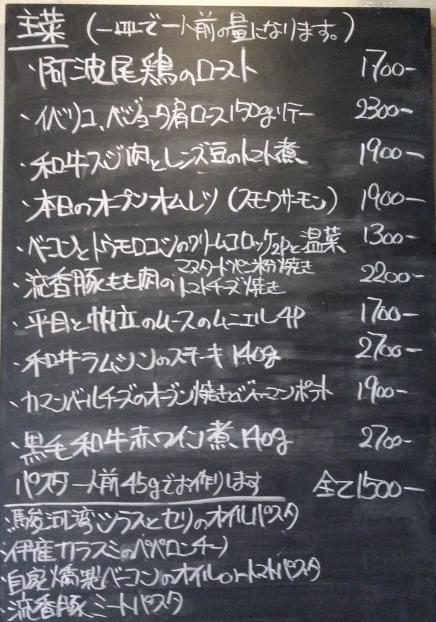 主菜 (一皿で一人前の量になります。)
・阿波尾鶏のロースト 1700-
・イベリコ、ベジョータ肩ロース150gソテー 2300-
・和牛スジ肉とレンズ豆のトマト煮 1900-
・本日のオープンオムレツ (スモークサーモン) 1900-
・ベーコンとトウモロコシのクリームコロッケ2Pと温菜 1300-
・流香豚もも肉のマスタードパン粉焼き 2200-
トマトチーズ焼き
・平目と帆立のムースのムニエル4P 1700-
・和牛ラムシンのステーキ140g 2700-
・カマンベールチーズのオーブン焼きとジャーマンポテト 1900-
・黒毛和牛赤ワイン煮140g 2700-
パスタ 一人前45gでお作りします 全て1500-
・駿河湾シラスとセリのオイルパスタ
・伊産カラスミのペペロンチーノ
・自家燻製ベーコンのオイルorトマトパスタ
・流香豚ミートパスタ